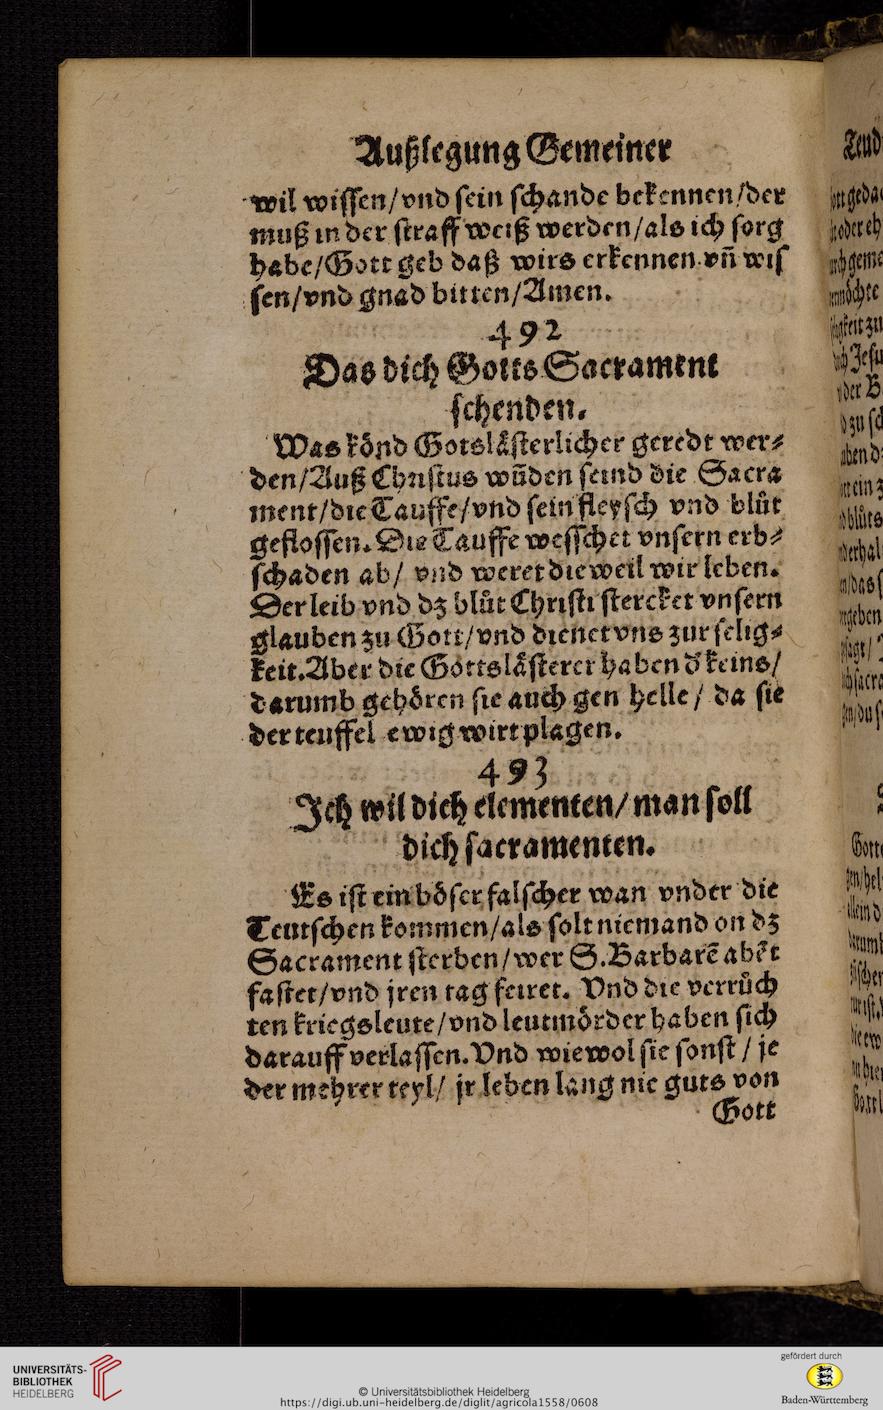 Außlegung Gemeiner
wil wissen/vnd sein schande bekennen/der
muß in der straff weiß werden/als ich sorg
habe/Gott geb daß wirs erkennen vñ wis
sen/vnd gnad bitten/Amen.
492
Das dich Gotts Sacrament
schenden.
Was kônd Gotslåsterlicher geredt wer⸗
den/Auß Christus wũden seind die Sacra
ment/die Tauffe/vnd sein fleysch vnd blůt
geflossen. Die Tauffe wesschet vnsern erb⸗
schaden ab/ vnd weret dieweil wir leben.
Der leib vnd dz blůt Christi stercket vnsern
glauben zu Gott/vnd dienet vns zur selig⸗
keit. Aber die Gottslåsterer haben d̕ keins/
darumb gehôren sie auch gen helle/ da sie
der teuffel ewig wirt plagen.
493
Ich wil dich elementen/man soll
dich sacramenten.
Es ist ein bôser falscher wan vnder die
Teutschen kommen/als solt niemand on dz
Sacrament sterben/wer S. Barbarẽ abẽt
fastet/vnd jren tag feiret. Vnd die verrůch
ten kriegsleute/vnd leutmôrder haben sich
darauff verlassen. Vnd wiewol sie sonst / je
der mehrer teyl/ jr leben lang nie guts von
Gott
UNIVERSITÄTS-
BIBLIOTHEK
HEIDELBERG
© Universitätsbibliothek Heidelberg
https://digi.ub.uni-heidelberg.de/diglit/agricola1558/0608
gefördert durch
Baden-Württemberg